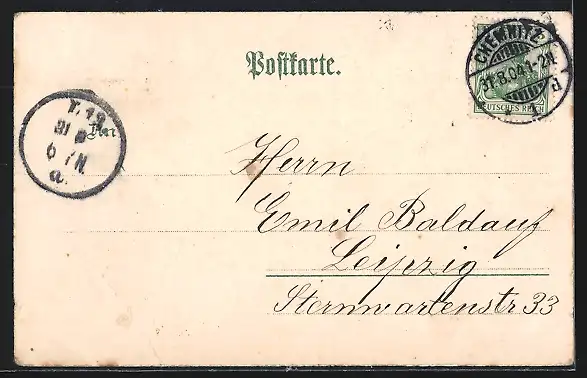 Postkarte.
CHEMNITZ
31.8.04.1-2N.
d
DEUTSCHES REICH
An
Herrn
Emil Baldauf
Leipzig
Sternwartenstr 33